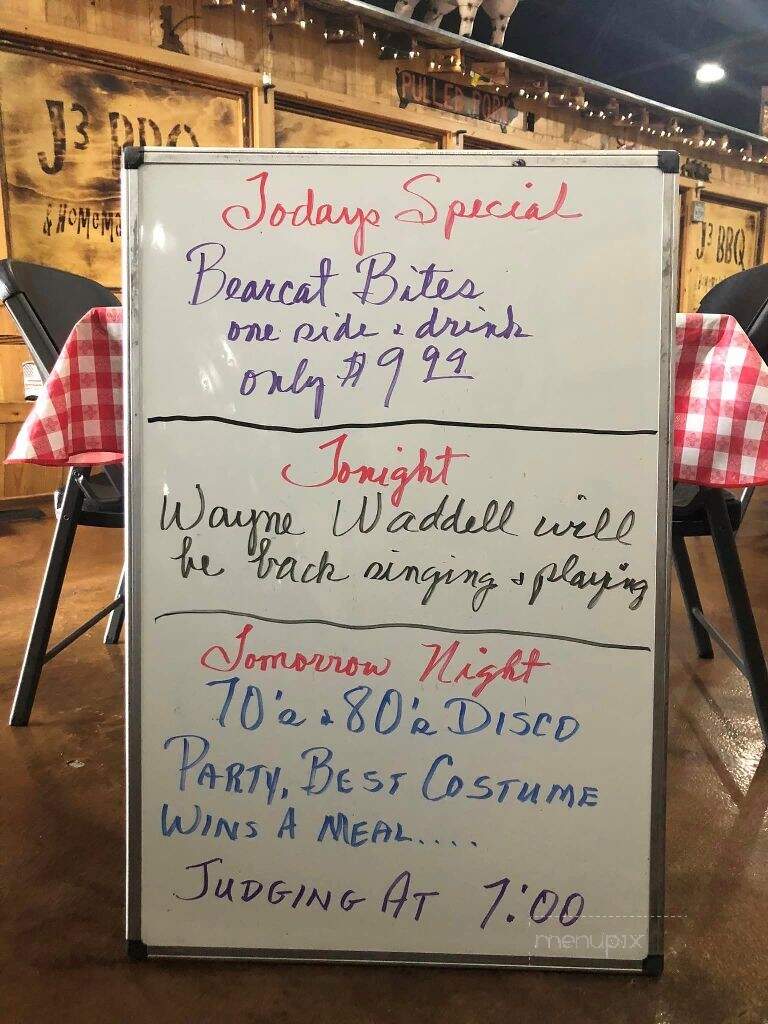 J3 BBQ
& HOMEMA
PULLED PORK
J3 BBQ
Todays Special
Bearcat Bites
one side & drink
only $9 99
Tonight
Wayne Waddell will
be back singing & playing
Tomorrow Night
70's & 80's DISCO
PARTY, BEST COSTUME
WINS A MEAL....
JUDGING AT 7:00
menupix